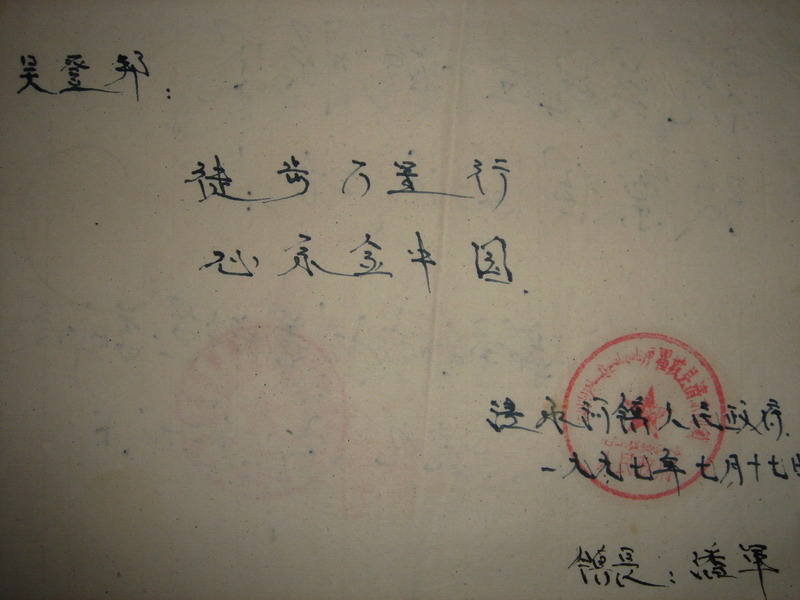 吴登邦：
徒步万里行
心系全中国
清水河镇人民政府
一九九七年七月十七日
镇长：潘军